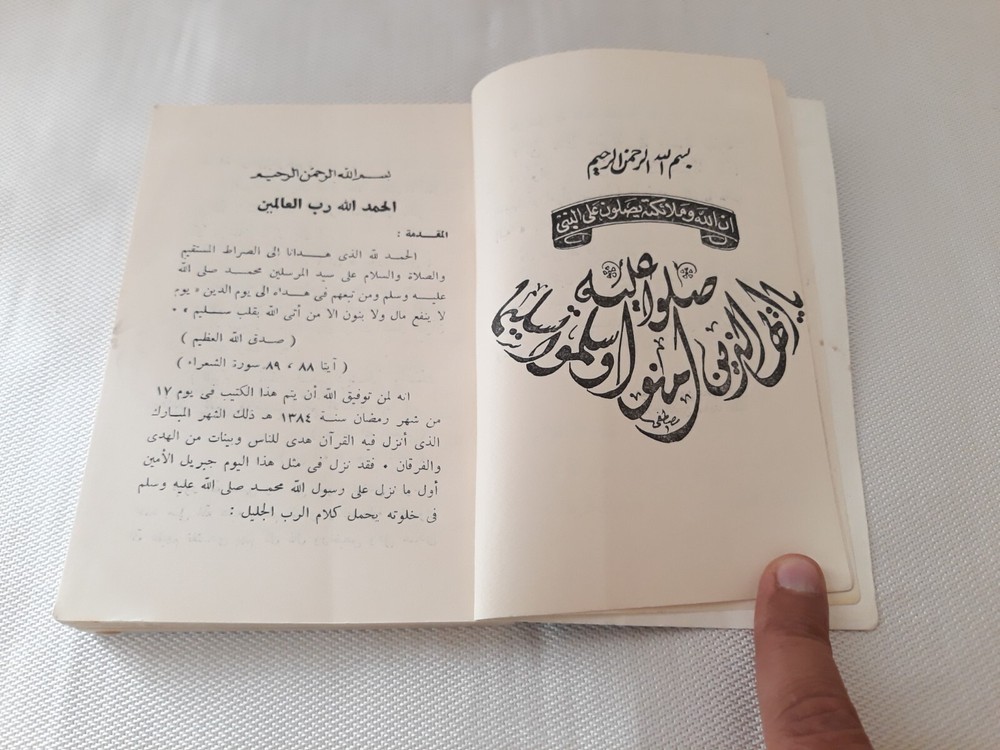 بسم الله الرحمن الرحيم
ان الله وملائكته يصلون على النبى
يا ايها الذين امنوا صلوا عليه وسلموا تسليما
مصطفى
بسم الله الرحمن الرحيم
الحمد الله رب العالمين
المقدمة :
الحمد لله الذى هدانا الى الصراط المستقيم
والصلاة والسلام على سيد المرسلين محمد صلى الله
عليه وسلم ومن تبعهم فى هداه الى يوم الدين « يوم
لا ينفع مال ولا بنون الا من أتى الله بقلب سليم » .
( صدق الله العظيم )
( آيتا ٨٨ ، ٨٩ سورة الشعراء )
انه لمن توفيق الله أن يتم هذا الكتيب فى يوم ١٧
من شهر رمضان سنة ١٣٨٤ هـ ذلك الشهر المبارك
الذى أنزل فيه القرآن هدى للناس وبينات من الهدى
والفرقان . فقد نزل فى مثل هذا اليوم جبريل الأمين
أول ما نزل على رسول الله محمد صلى الله عليه وسلم
فى خلوته يحمل كلام الرب الجليل :